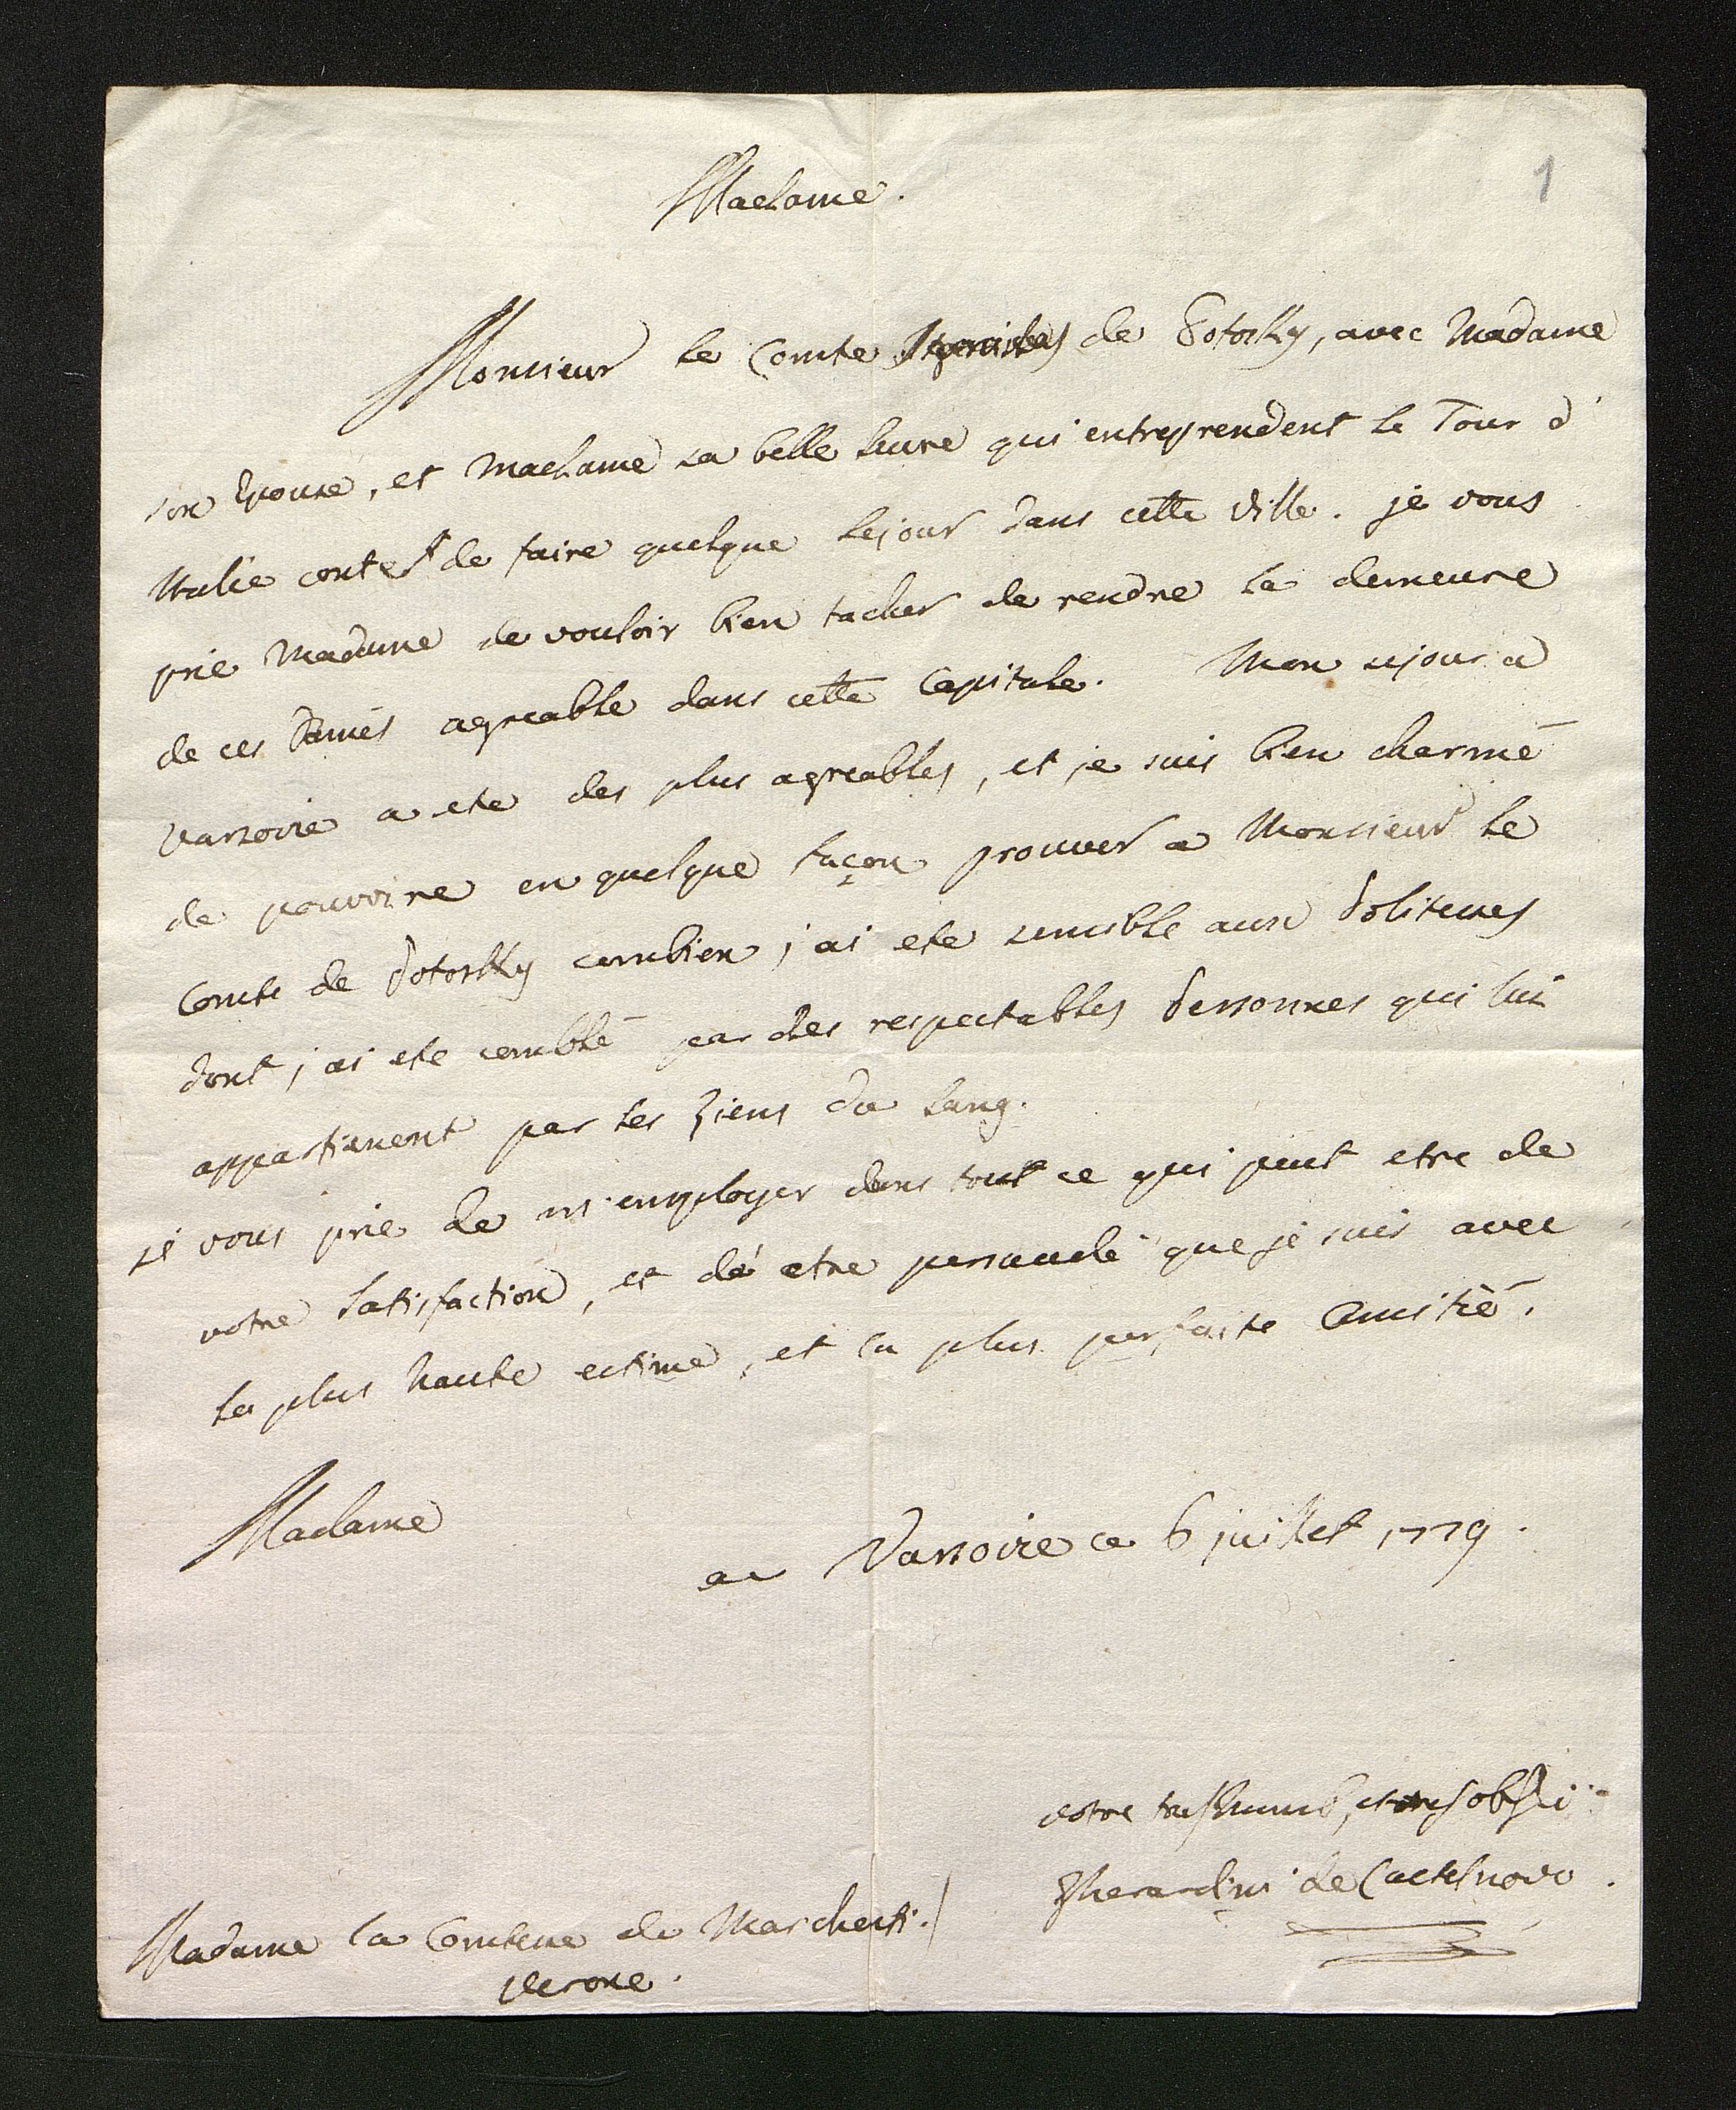 1
Madame.
Monsieur le Comte de Potosky, avec Madame
son Epouse, et Madame sa belle seure qui entreprendent le Tour d'
Italie contet de faire quelque sejour dans cette Ville. je vous
prie Madame de vouloir bien tacher de rendre la demeure
de ces Dames agreable dans cette Capitale. Mon sejour a
Varsovie a ete des plus agreables, et je suis bien charmé
de pouvoire en quelque façon prouver a Monsieur le
Comte de Potosky combien j'ai ete sensible aux Politesses
dont j'ai ete comblé par des respectables Personnes qui lui
appartienent par les Liens du sang.
je vous prie de m'employer dans tout ce qui peut etre de
votre Satisfaction, et de etre persuadé que je suis avec
la plus haute estime, et la plus parfaite Amitié.
Madame
a Varsoire ce 6 juillet 1779.
votre treshumb, et tresobs
Gherardini de Castelnovo.
Madame la Comtesse de Marchenti. /
Verone.